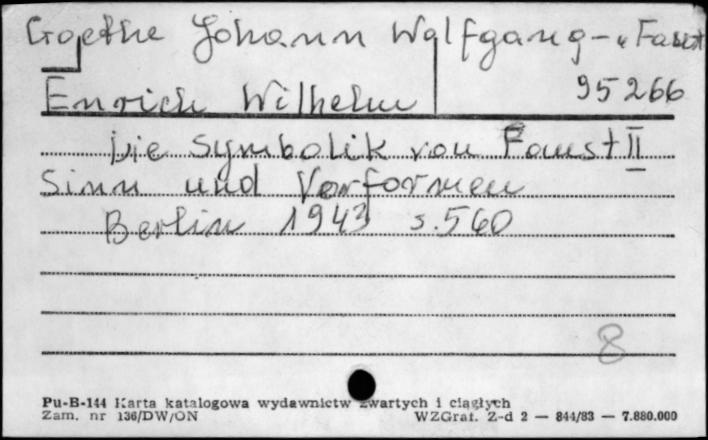 Goethe Johann Wolfgang - "Faust
95266
Enrich Wilhelm
Die Symbolik von Faust II
Sinn und Vorformen
Berlin 1943 s. 560
8
Pu-B-144 Karta katalogowa wydawnictw zwartych i ciągłych
Zam. nr 136/DW/ON WZGraf. Z-d 2 — 844/83 — 7.880.000